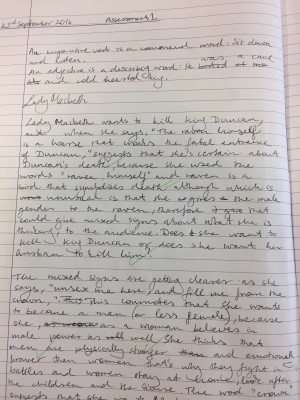 23rd September 2016 Assessment 1.
An imperative verb is a command word: Sit down
and listen. was a cruel
An adjective is a describing word: He
and cold hearted guy.
Lady Macbeth
Lady Macbeth wants to kill King Duncan,
when she says, "The raven himself
is a hoarse that croaks the fatal entrance
of Duncan," suggests that she's certain about
Duncan's death because she used the
words 'raven himself' and raven is a
bird that symbolises death although which is
unusual is that she the male
gender to the raven, therefore that
could give mixed signs about what she is
thinking to the audience. Does she want to
kill King Duncan or does she want her
husband to kill him?
The mixed signs are getting clearer as she
says, "unsex me here and fill me from the
crown," This connotes that she wants
to become a man (or less female) because
she, as a woman believes in
male power as well. She thinks that
men are physically stronger and emotionally
braver then women that's why they fight in
battles and women stay at home, look after
the children and the house. The word 'crown'
suggests that she